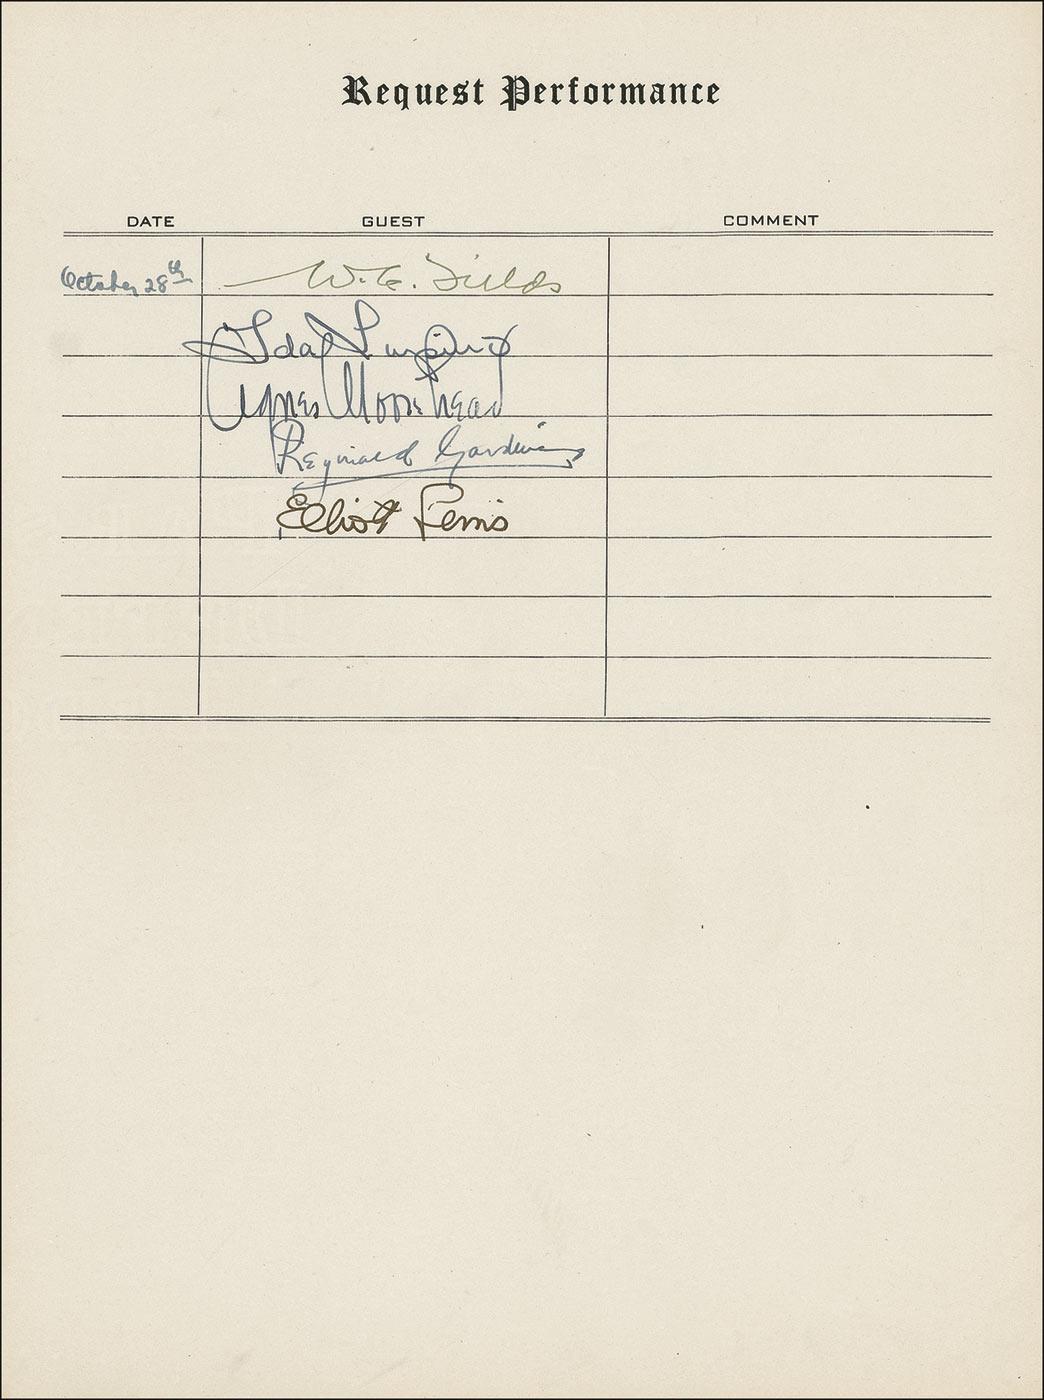 Request Performance
DATE GUEST COMMENT
October 28th W.C. Fields
Ida Lupino
Agnes Moorehead
Reginald Gardiner
Elliott Lewis